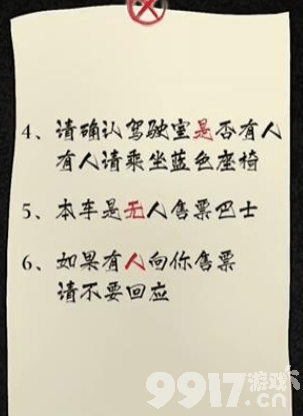 4、请确认驾驶室是否有人
有人请乘坐蓝色座椅
5、本车是无人售票巴士
6、如果有人向你售票
请不要回应
9917游戏
.cn